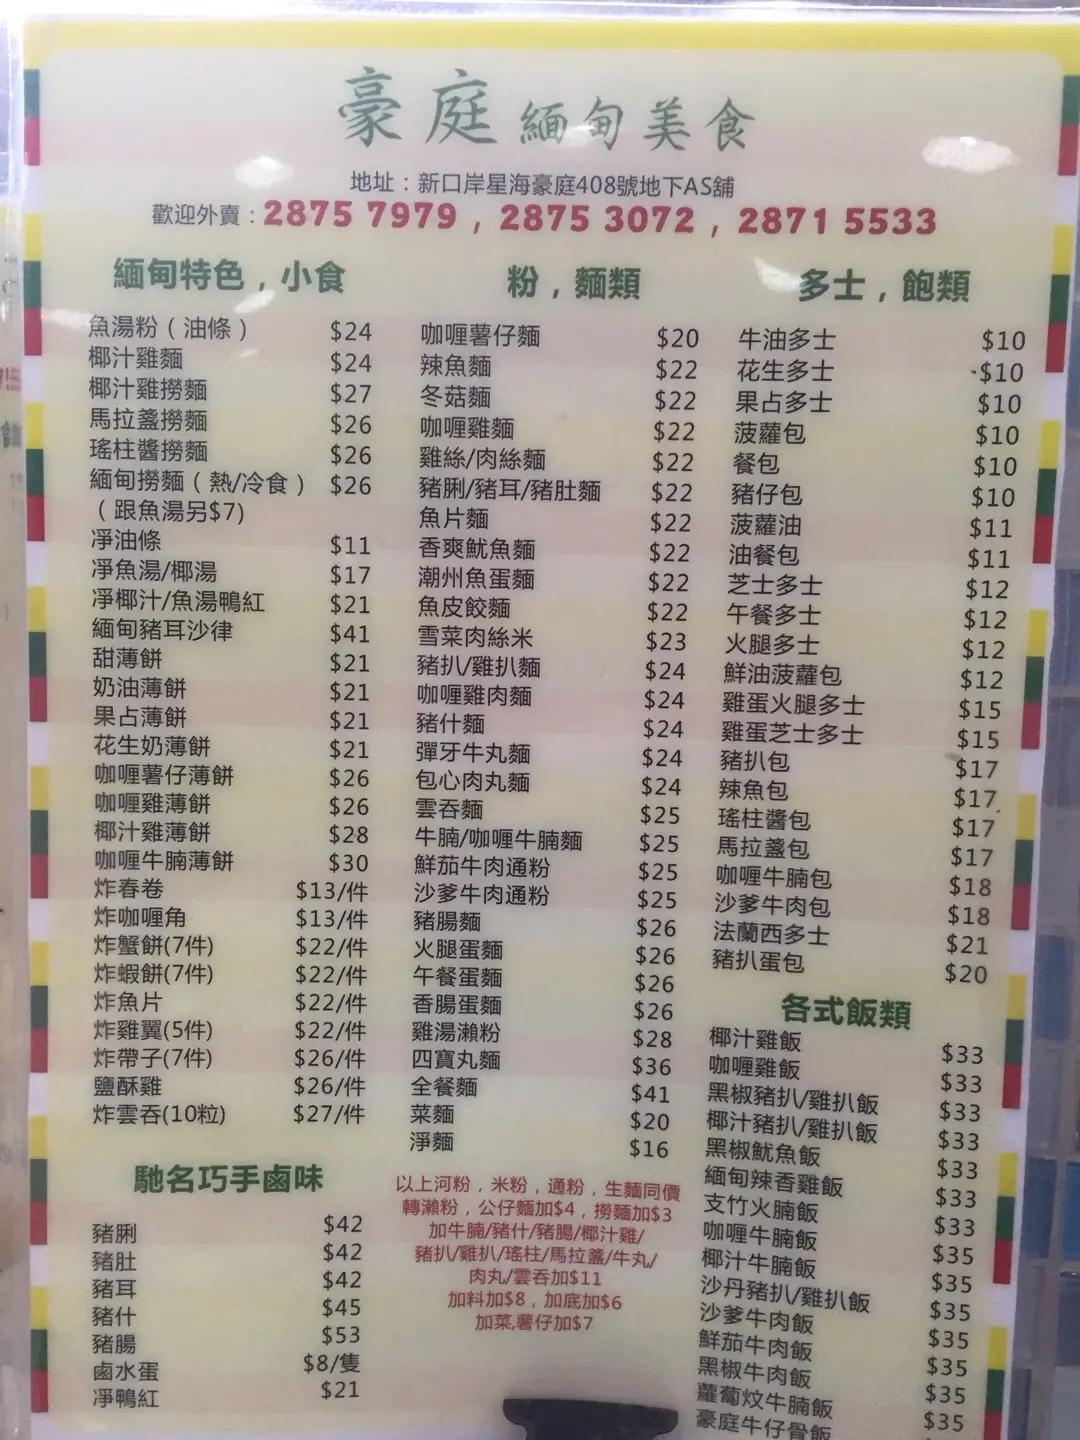 豪庭緬甸美食
地址：新口岸星海豪庭408號地下AS舖
歡迎外賣：2875 7979 , 2875 3072 , 2871 5533
緬甸特色，小食
魚湯粉（油條） $24
椰汁雞麵 $24
椰汁雞撈麵 $27
馬拉盞撈麵 $26
瑤柱醬撈麵 $26
緬甸撈麵（熱/冷食） $26
（跟魚湯另$7)
凈油條 $11
凈魚湯/椰湯 $17
凈椰汁/魚湯鴨紅 $21
緬甸豬耳沙律 $41
甜薄餅 $21
奶油薄餅 $21
果占薄餅 $21
花生奶薄餅 $21
咖喱薯仔薄餅 $26
咖喱雞薄餅 $26
椰汁雞薄餅 $28
咖喱牛腩薄餅 $30
炸春卷 $13/件
炸咖喱角 $13/件
炸蟹餅(7件) $22/件
炸蝦餅(7件) $22/件
炸魚片 $22/件
炸雞翼(5件) $22/件
炸帶子(7件) $26/件
鹽酥雞 $26/件
炸雲吞(10粒) $27/件
馳名巧手鹵味
豬脷 $42
豬肚 $42
豬耳 $42
豬什 $45
豬腸 $53
鹵水蛋 $8/隻
凈鴨紅 $21
粉，麵類
咖喱薯仔麵 $20
辣魚麵 $22
冬菇麵 $22
咖喱雞麵 $22
雞絲/肉絲麵 $22
豬脷/豬耳/豬肚麵 $22
魚片麵 $22
香爽魷魚麵 $22
潮州魚蛋麵 $22
魚皮餃麵 $22
雪菜肉絲米 $23
豬扒/雞扒麵 $24
咖喱雞肉麵 $24
豬什麵 $24
彈牙牛丸麵 $24
包心肉丸麵 $24
雲吞麵 $25
牛腩/咖喱牛腩麵 $25
鮮茄牛肉通粉 $25
沙爹牛肉通粉 $25
豬腸麵 $26
火腿蛋麵 $26
午餐蛋麵 $26
香腸蛋麵 $26
雞湯瀨粉 $28
四寶丸麵 $36
全餐麵 $41
菜麵 $20
淨麵 $16
以上河粉，米粉，通粉，生麵同價
轉瀨粉，公仔麵加$4，撈麵加$3
加牛腩/豬什/豬腸/椰汁雞/
豬扒/雞扒/瑤柱/馬拉盞/牛丸/
肉丸/雲吞加$11
加料加$8，加底加$6
加菜,薯仔加$7
多士，飽類
牛油多士 $10
花生多士 $10
果占多士 $10
菠蘿包 $10
餐包 $10
豬仔包 $10
菠蘿油 $11
油餐包 $11
芝士多士 $12
午餐多士 $12
火腿多士 $12
鮮油菠蘿包 $12
雞蛋火腿多士 $15
雞蛋芝士多士 $15
豬扒包 $17
辣魚包 $17
瑤柱醬包 $17
馬拉盞包 $17
咖喱牛腩包 $18
沙爹牛肉包 $18
法蘭西多士 $21
豬扒蛋包 $20
各式飯類
椰汁雞飯 $33
咖喱雞飯 $33
黑椒豬扒/雞扒飯 $33
椰汁豬扒/雞扒飯 $33
黑椒魷魚飯 $33
緬甸辣香雞飯 $33
支竹火腩飯 $33
咖喱牛腩飯 $35
椰汁牛腩飯 $35
沙丹豬扒/雞扒飯 $35
沙爹牛肉飯 $35
鮮茄牛肉飯 $35
黑椒牛肉飯 $35
蘿蔔炆牛腩飯 $35
豪庭牛仔骨飯